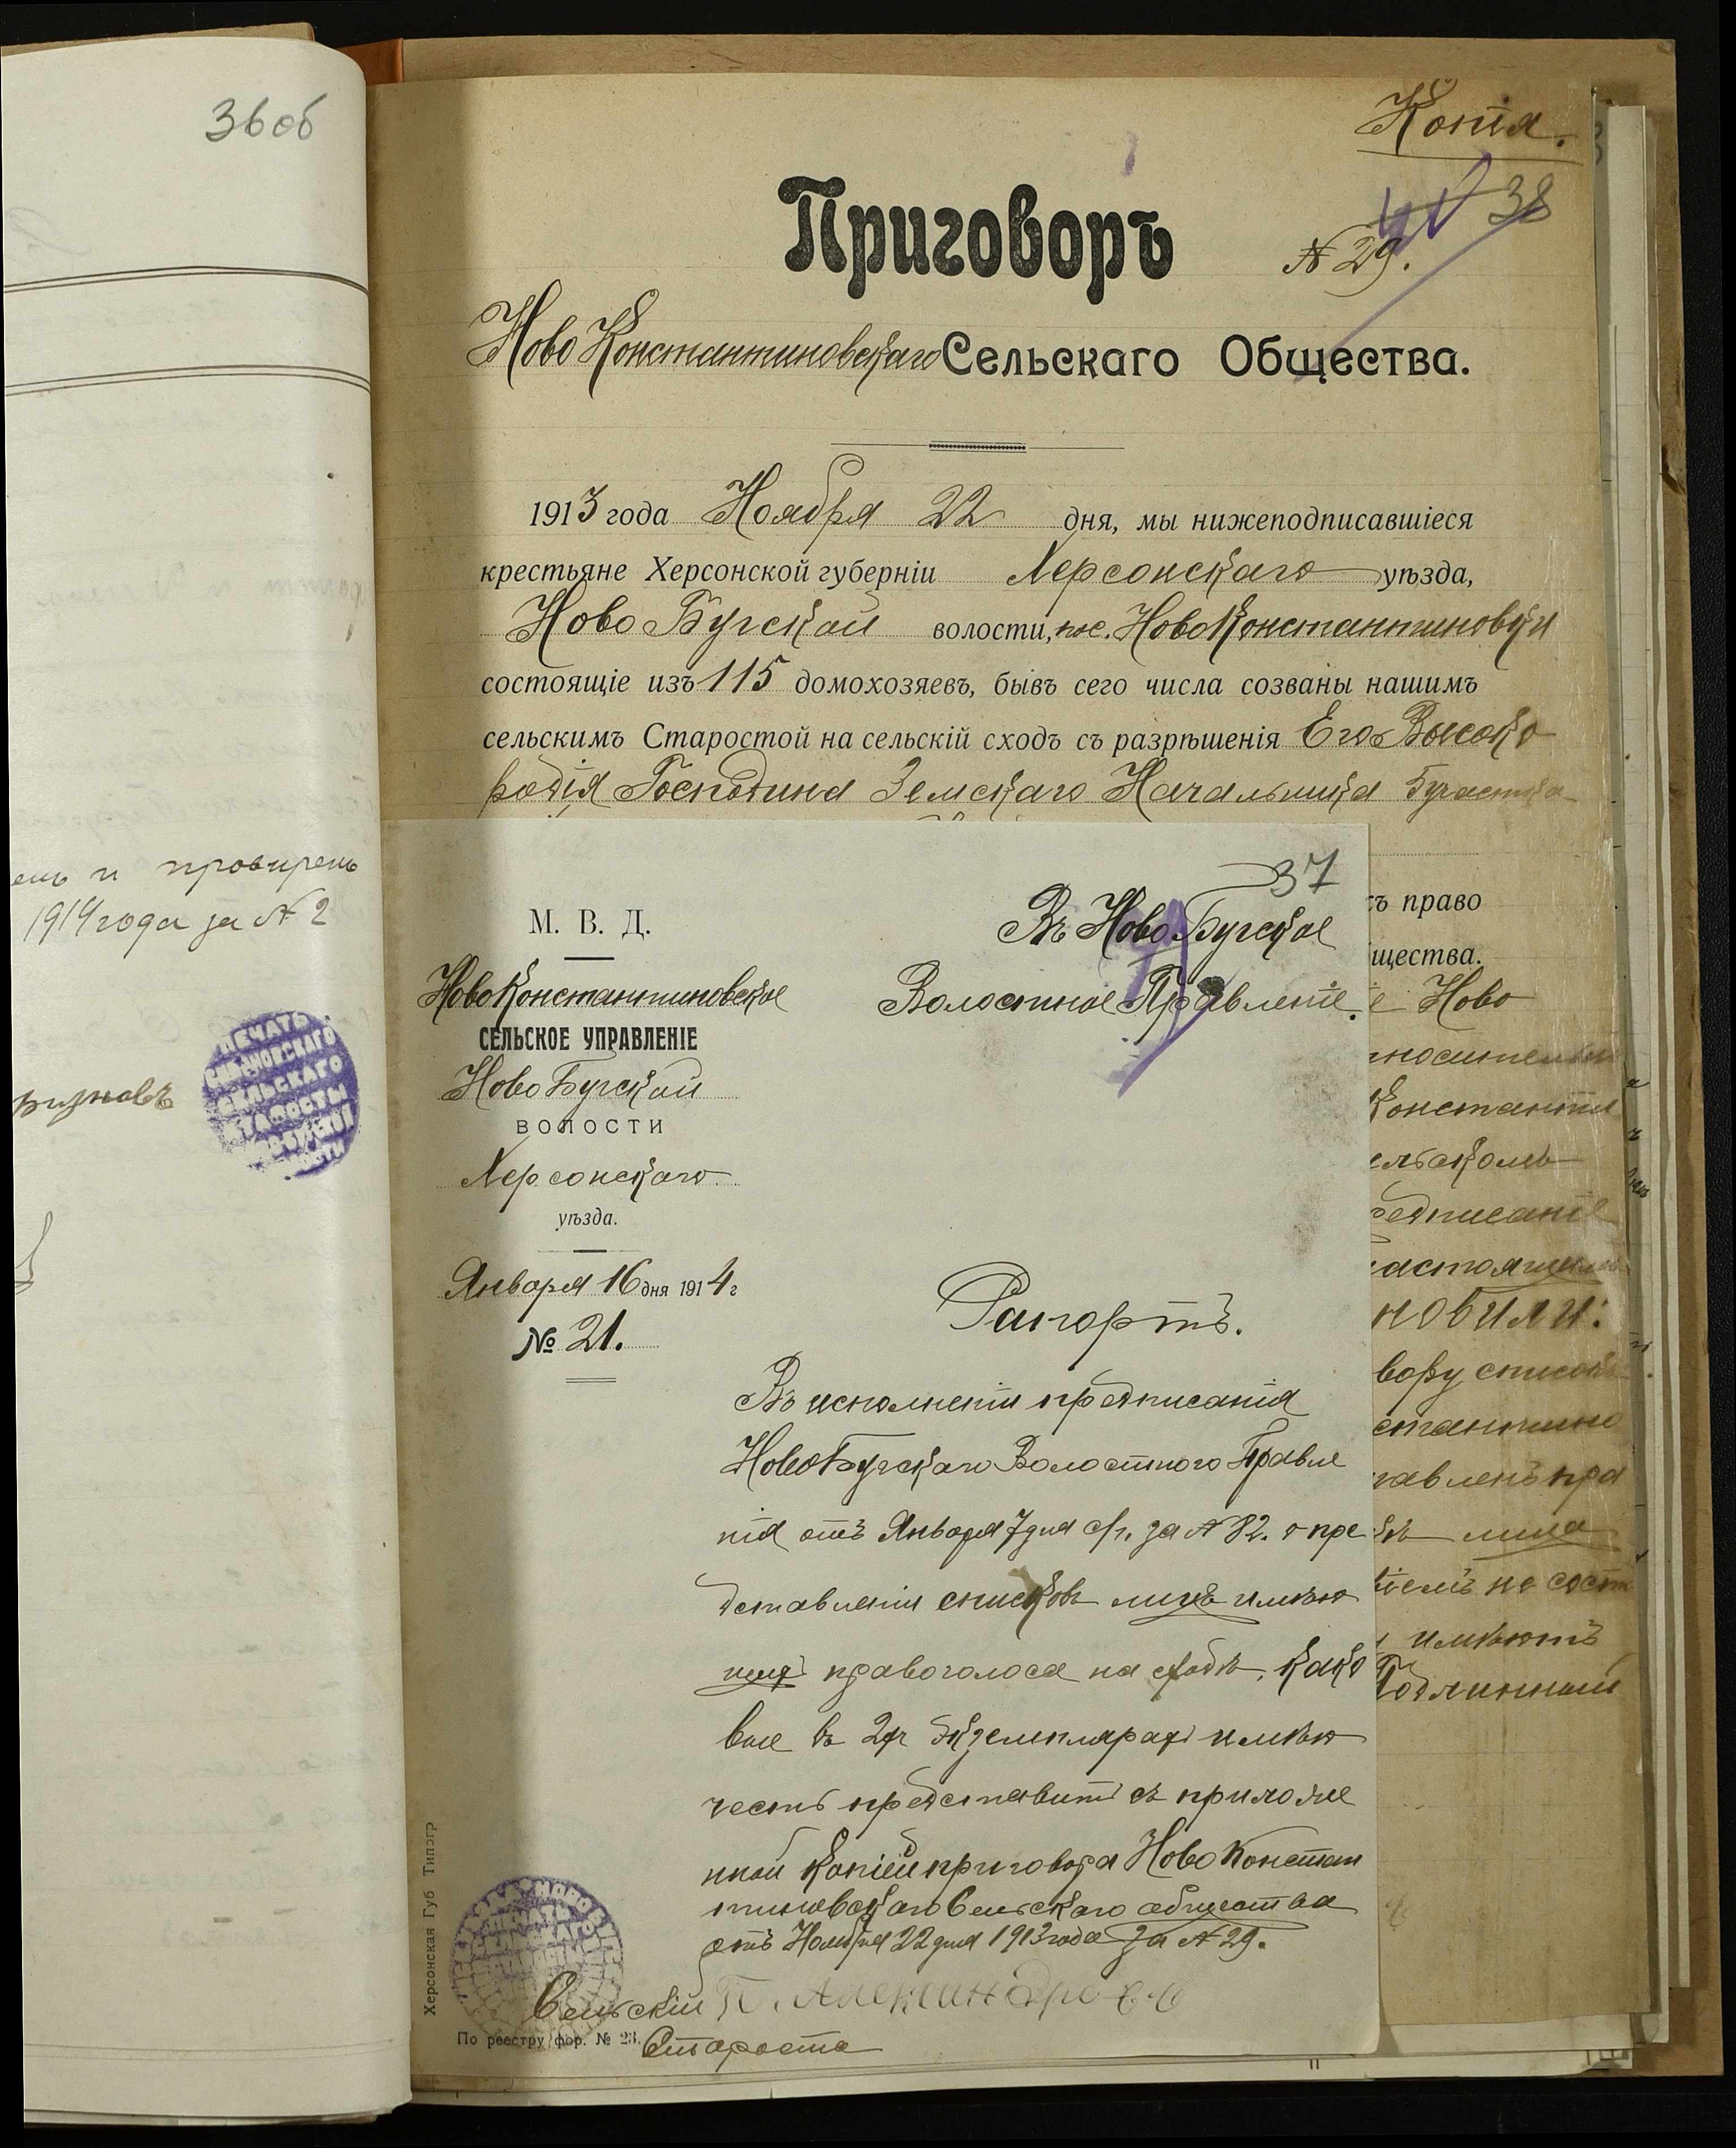 36 об
1914 года за № 2
Копія.
38
Приговоръ
№ 29.
Ново Константиновскаго Сельскаго Общества.
1913 года Ноября 22 дня, мы нижеподписавшіеся
крестьяне Херсонской губерніи Херсонскаго уѣзда,
Ново Бугской волости, пос. Ново Константиновки
состоящіе изъ 115 домохозяевъ, бывъ сего числа созваны нашимъ
сельскимъ Старостой на сельскій сходъ съ разрѣшенія Его Высоко
родія Господина Земскаго Начальника 5 участка
ъ право
щества.
е Ново
Константи
ельскомъ
редписаніе
астоящимъ
новили:
вору списокъ
стантино
тавленъ пра
лица
имѣютъ
Подлинный
37
М. В. Д.
Ново Константиновское
СЕЛЬСКОЕ УПРАВЛЕНІЕ
Ново Бугской
ВОЛОСТИ
Херсонскаго
уѣзда.
Января 16 дня 1914 г
№ 21.
Въ Ново Бугское
Волостное Правленіе.
Рапортъ.
Въ исполненіи предписанія
Ново Бугскаго Волостного Правле
нія отъ Января 7 дня с/г. за № 82. о пре
дставленіи списковъ лицъ имѣю
щихъ право голоса на сходѣ, како
вые въ 2хъ экземплярахъ имѣю
честь представить съ приложе
нной копіей приговора Ново Констан
тиновскаго Сельскаго общества
отъ Ноября 22 дня 1913 года за № 29.
Сельскій П. Александров
Староста
По реестру фор. № 23.
Херсонская Губ Типогр